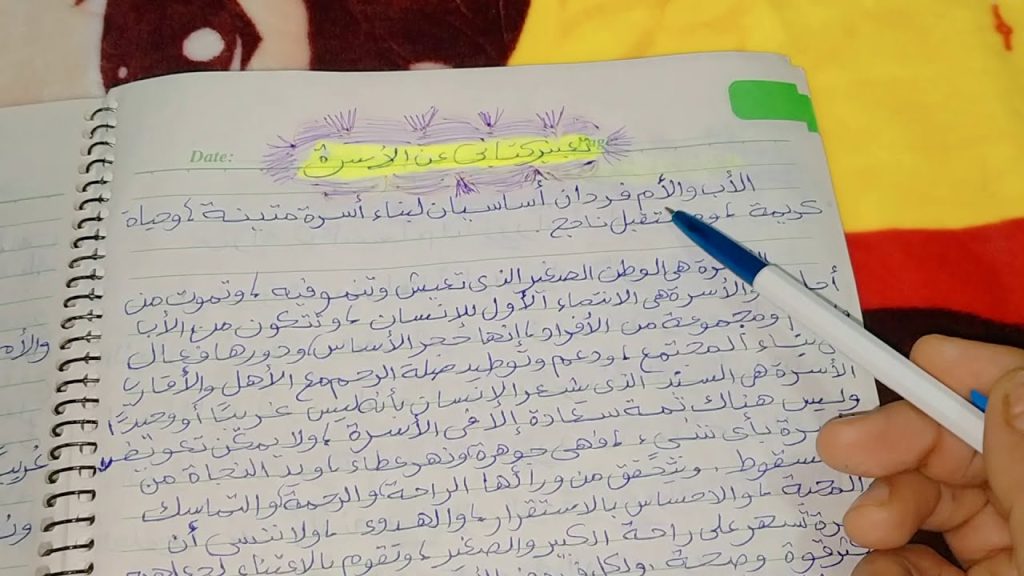 Date:
تعبير كتابى عن الأسرة
الأب والأم فردان أساسيان لبناء أسرة متينة ، وحياة
كريمة ، ناجح .
هى الوطن الصغير الذى تعيش وتنمو فيه ، وتموت من
والأسرة هى الانتماء الأول للإنسان ، وتتكون من الأب
ومجموعة من الأفراد ، إنها حجر الأساس ، ودورها فعال
المجتمع ، ودعم وتوطيد صلة الرحم مع الأهل والأقارب
الأسرة هى السند الذى يشعر الإنسان بأنه ليس غريبًا أو وحيدًا
وليس هناك ثمة سعادة إلا فى الأسرة ، ولا يمكن تعويض
بأى شىء ، فهى جوهرة ونهر عطاء ، ويد النجاة من
ويتحقق من ورائها الراحة ، والرحمة ، والتماسك
المحبة ، والاحساس بالاستقرار ، والهدوء ، ولا ننسى أن
تسهر على راحة الكبير والصغير ، وتقوم بالاعتناء
قوة وصحة
والأم